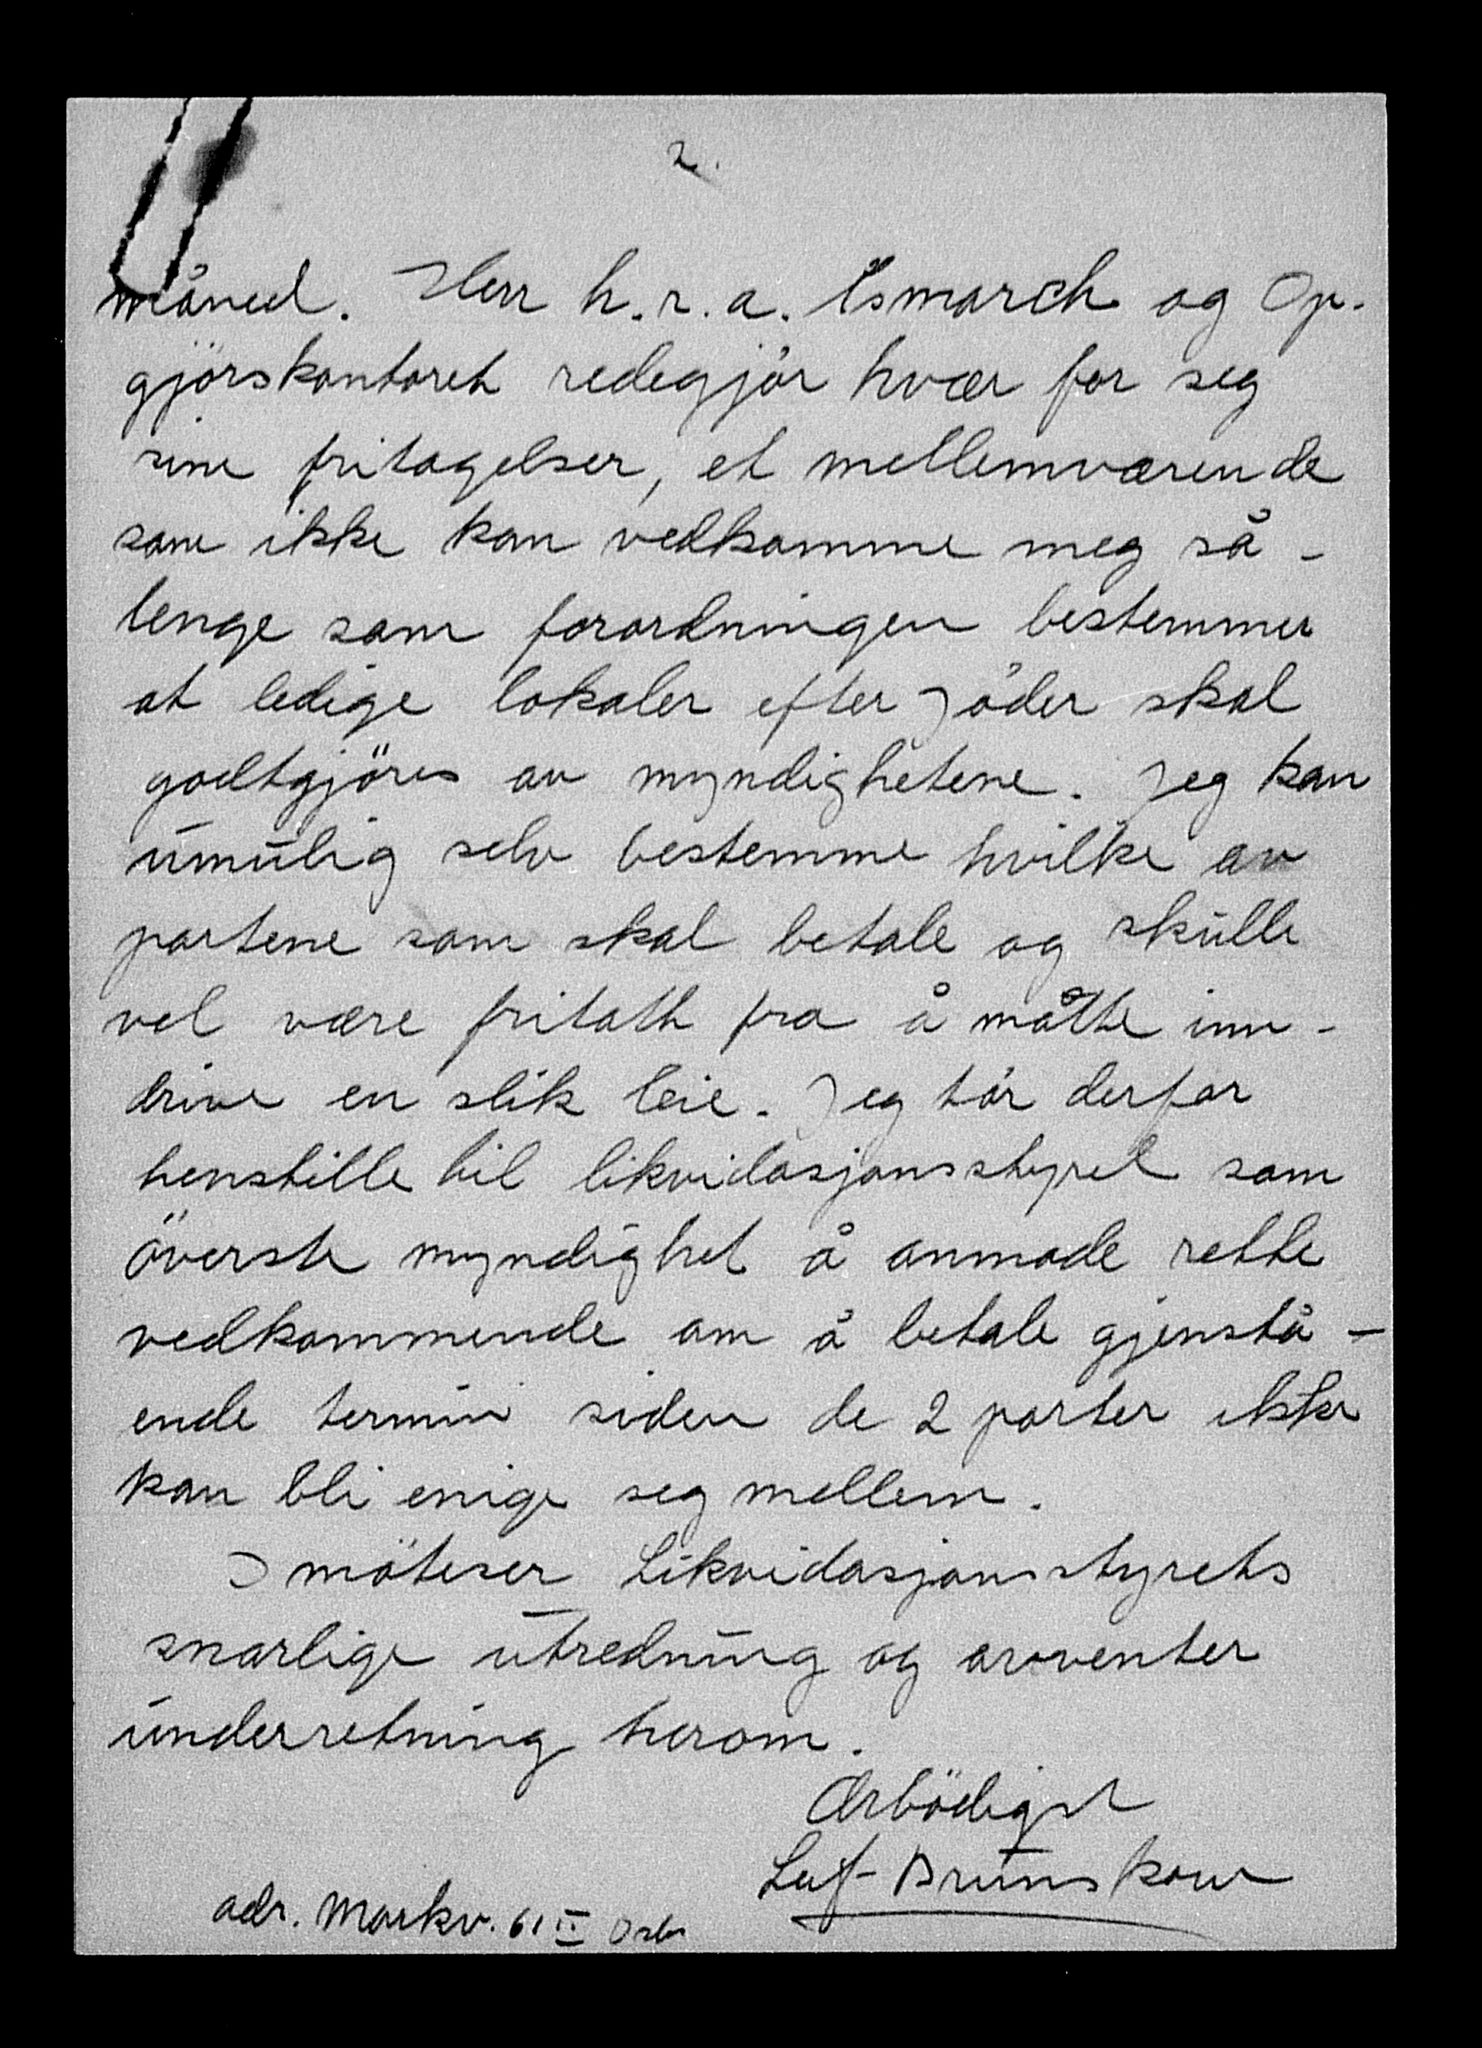 2.
måned. Herr h.r.a. Esmarch og Op-
gjörskontoret redegjör hvær for seg
sine fritagelser, et mellemværende
som ikke kan vedkomme meg så-
lenge som forordningen bestemmer
at ledige lokaler efter jöder skal
godtgjöres av myndighetene. Jeg kan
umulig selv bestemme hvilke av
partene som skal betale og skulle
vel være fritatt fra å måtte inn-
drive en slik leie. Jeg tör derfor
henstille til likvidasjonsstyret som
överste myndighet å anmode rette
vedkommende om å betale gjenstå-
ende termin siden de 2 parter ikke
kan bli enige seg mellem.
Imöteser Likvidasjonsstyrets
snarlige utredning og avventer
underretning herom.
Ærbödigst
Leif Brunskow
adr. Markv. 61 II Oslo